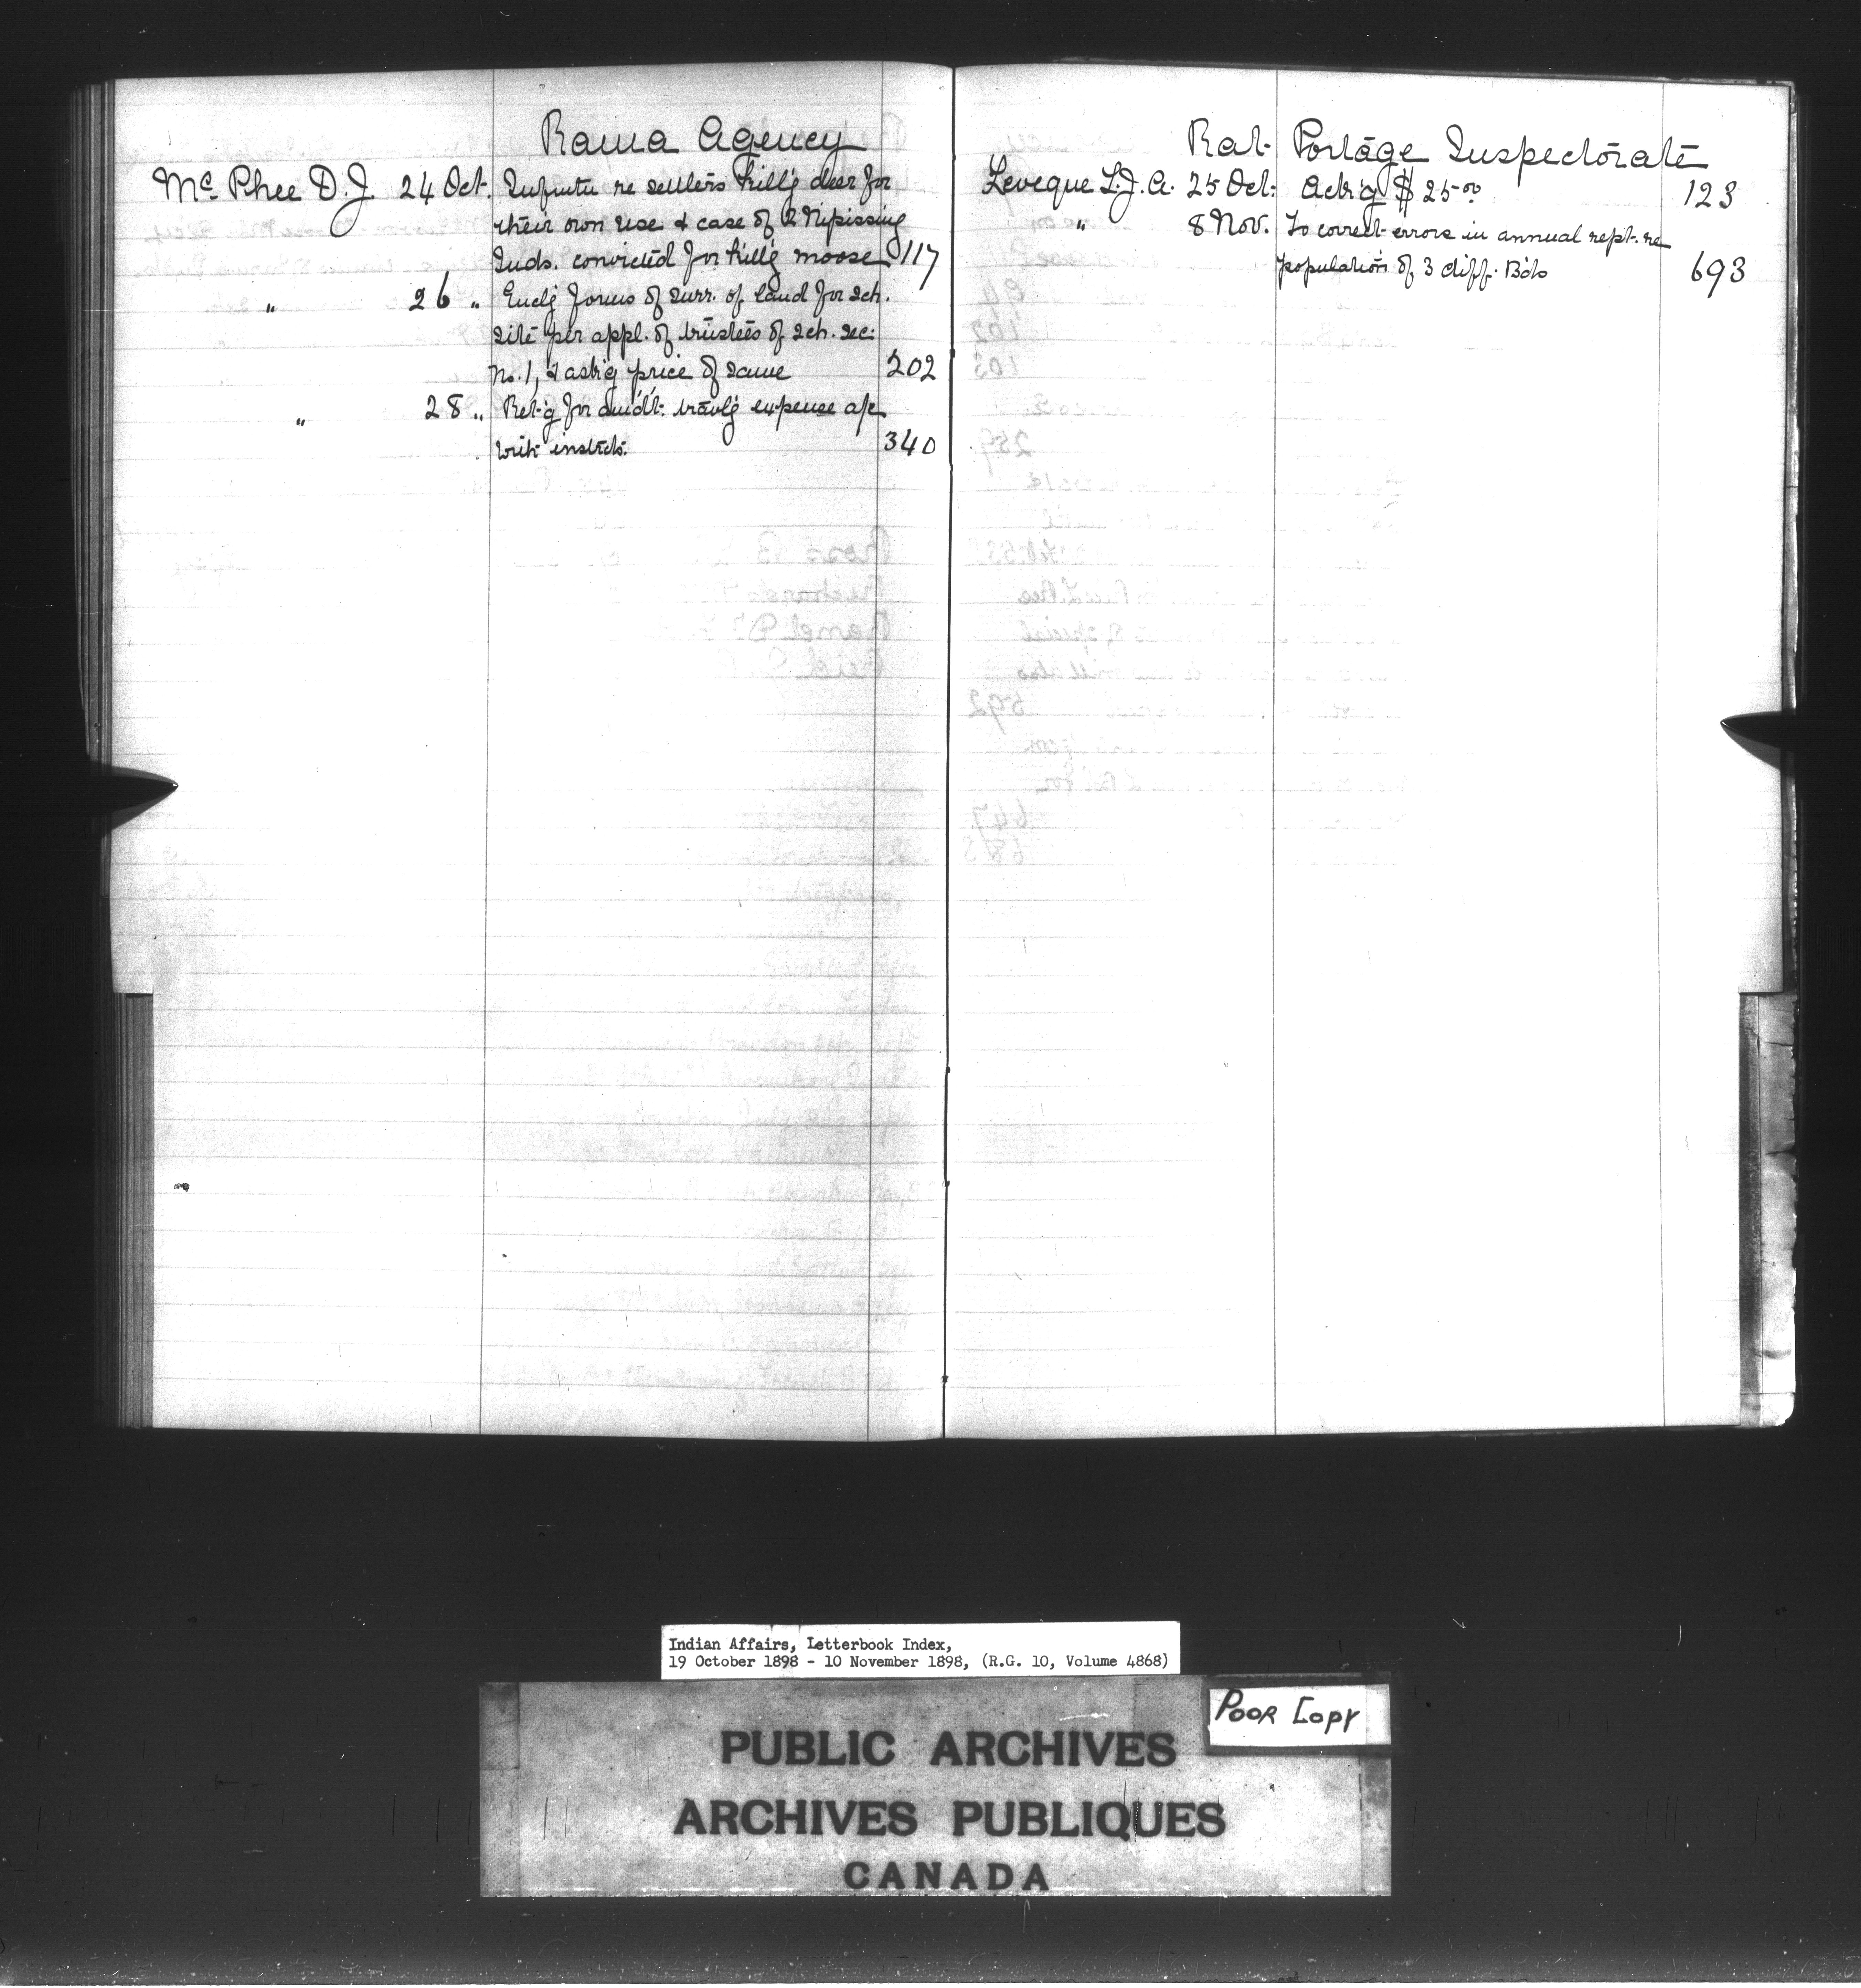 Rama Agency
Mc Phee D.J. 24 Oct. Infmtn re settlers killg deer for
their own use & case of 2 Nipissing
Inds. convicted for killg moose 117
" 26 " Enclg forms of surr. of land for sch.
site per appl. of trustees of sch. sec.
No. 1, & askg price of same 202
" 28 " Ret-g for amdt. travlg expense a/c
with instrcts. 340
Rat Portage Inspectorate
Leveque L.J.A. 25 Oct. Ackg $ 25.00 123
" 8 Nov. To correct errors in annual rept. re
population of 3 diff. Bds 693
Indian Affairs, Letterbook Index,
19 October 1898 - 10 November 1898, (R.G. 10, Volume 4868)
POOR COPY
PUBLIC ARCHIVES
ARCHIVES PUBLIQUES
CANADA